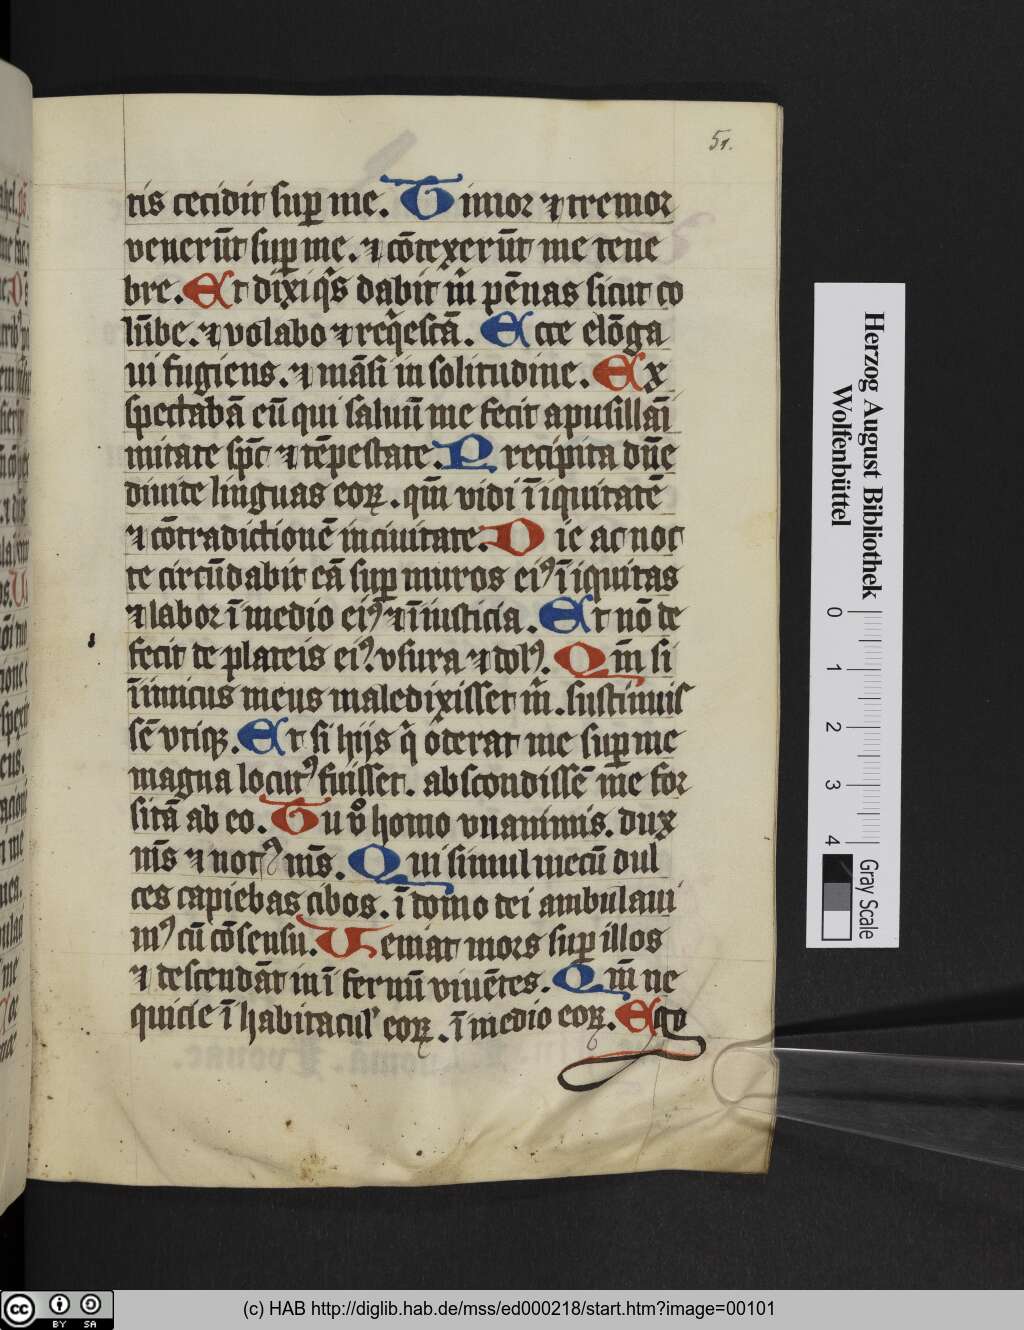 51.
tis cecidit sup̲ me. Timor ⁊ tremor
venerūt sup̲ me. ⁊ cōtexerūt me tene
bre. Et dixi q̄s dabit m̄ pēnas sicut co
lūbe. ⁊ volabo ⁊ req̄estā. Ecce elōga
ui fugiens. ⁊ māsi in solitudine. Ex
spectabā eū qui saluū me fecit apusillaī
mitate sp̄c ⁊ tēpestate. Precipita dn̄e
diuide linguas eoꝝ. qm̄ vidi īiquitatē
⁊ cōtradictionē inciuitate. Die ac noc
te circūdabit eā sup̲ muros eiꝰ īiquitas
⁊ labor ī medio eiꝰ ⁊ īiusticia. Et nō de
fecit de plateis eiꝰ. vsura ⁊ dolꝰ. Qm̄ si
īimicus meus maledixisset m̄. sustinuis
sē vtiqꝫ. Et si hijs q̄ oderat me sup̲ me
magna locutꝰ fuisset. abscondissē me for
sitā ab eo. Tu v̊ homo vnanimis. dux
m̄s ⁊ notꝰ m̄s. Qui simul mecū dul
ces capiebas cibos. ī domo dei ambulaui
mꝰ cū cōsensu. Veniat mors sup̲ illos
⁊ descendāt in ī fernū viuētes. Qm̄ ne
quicie ī habitacul' eoꝝ. ī medio eoꝝ. Ego
Herzog August Bibliothek
Wolfenbüttel
0 1 2 3 4
Gray Scale
cc BY SA
(c) HAB http://diglib.hab.de/mss/ed000218/start.htm?image=00101